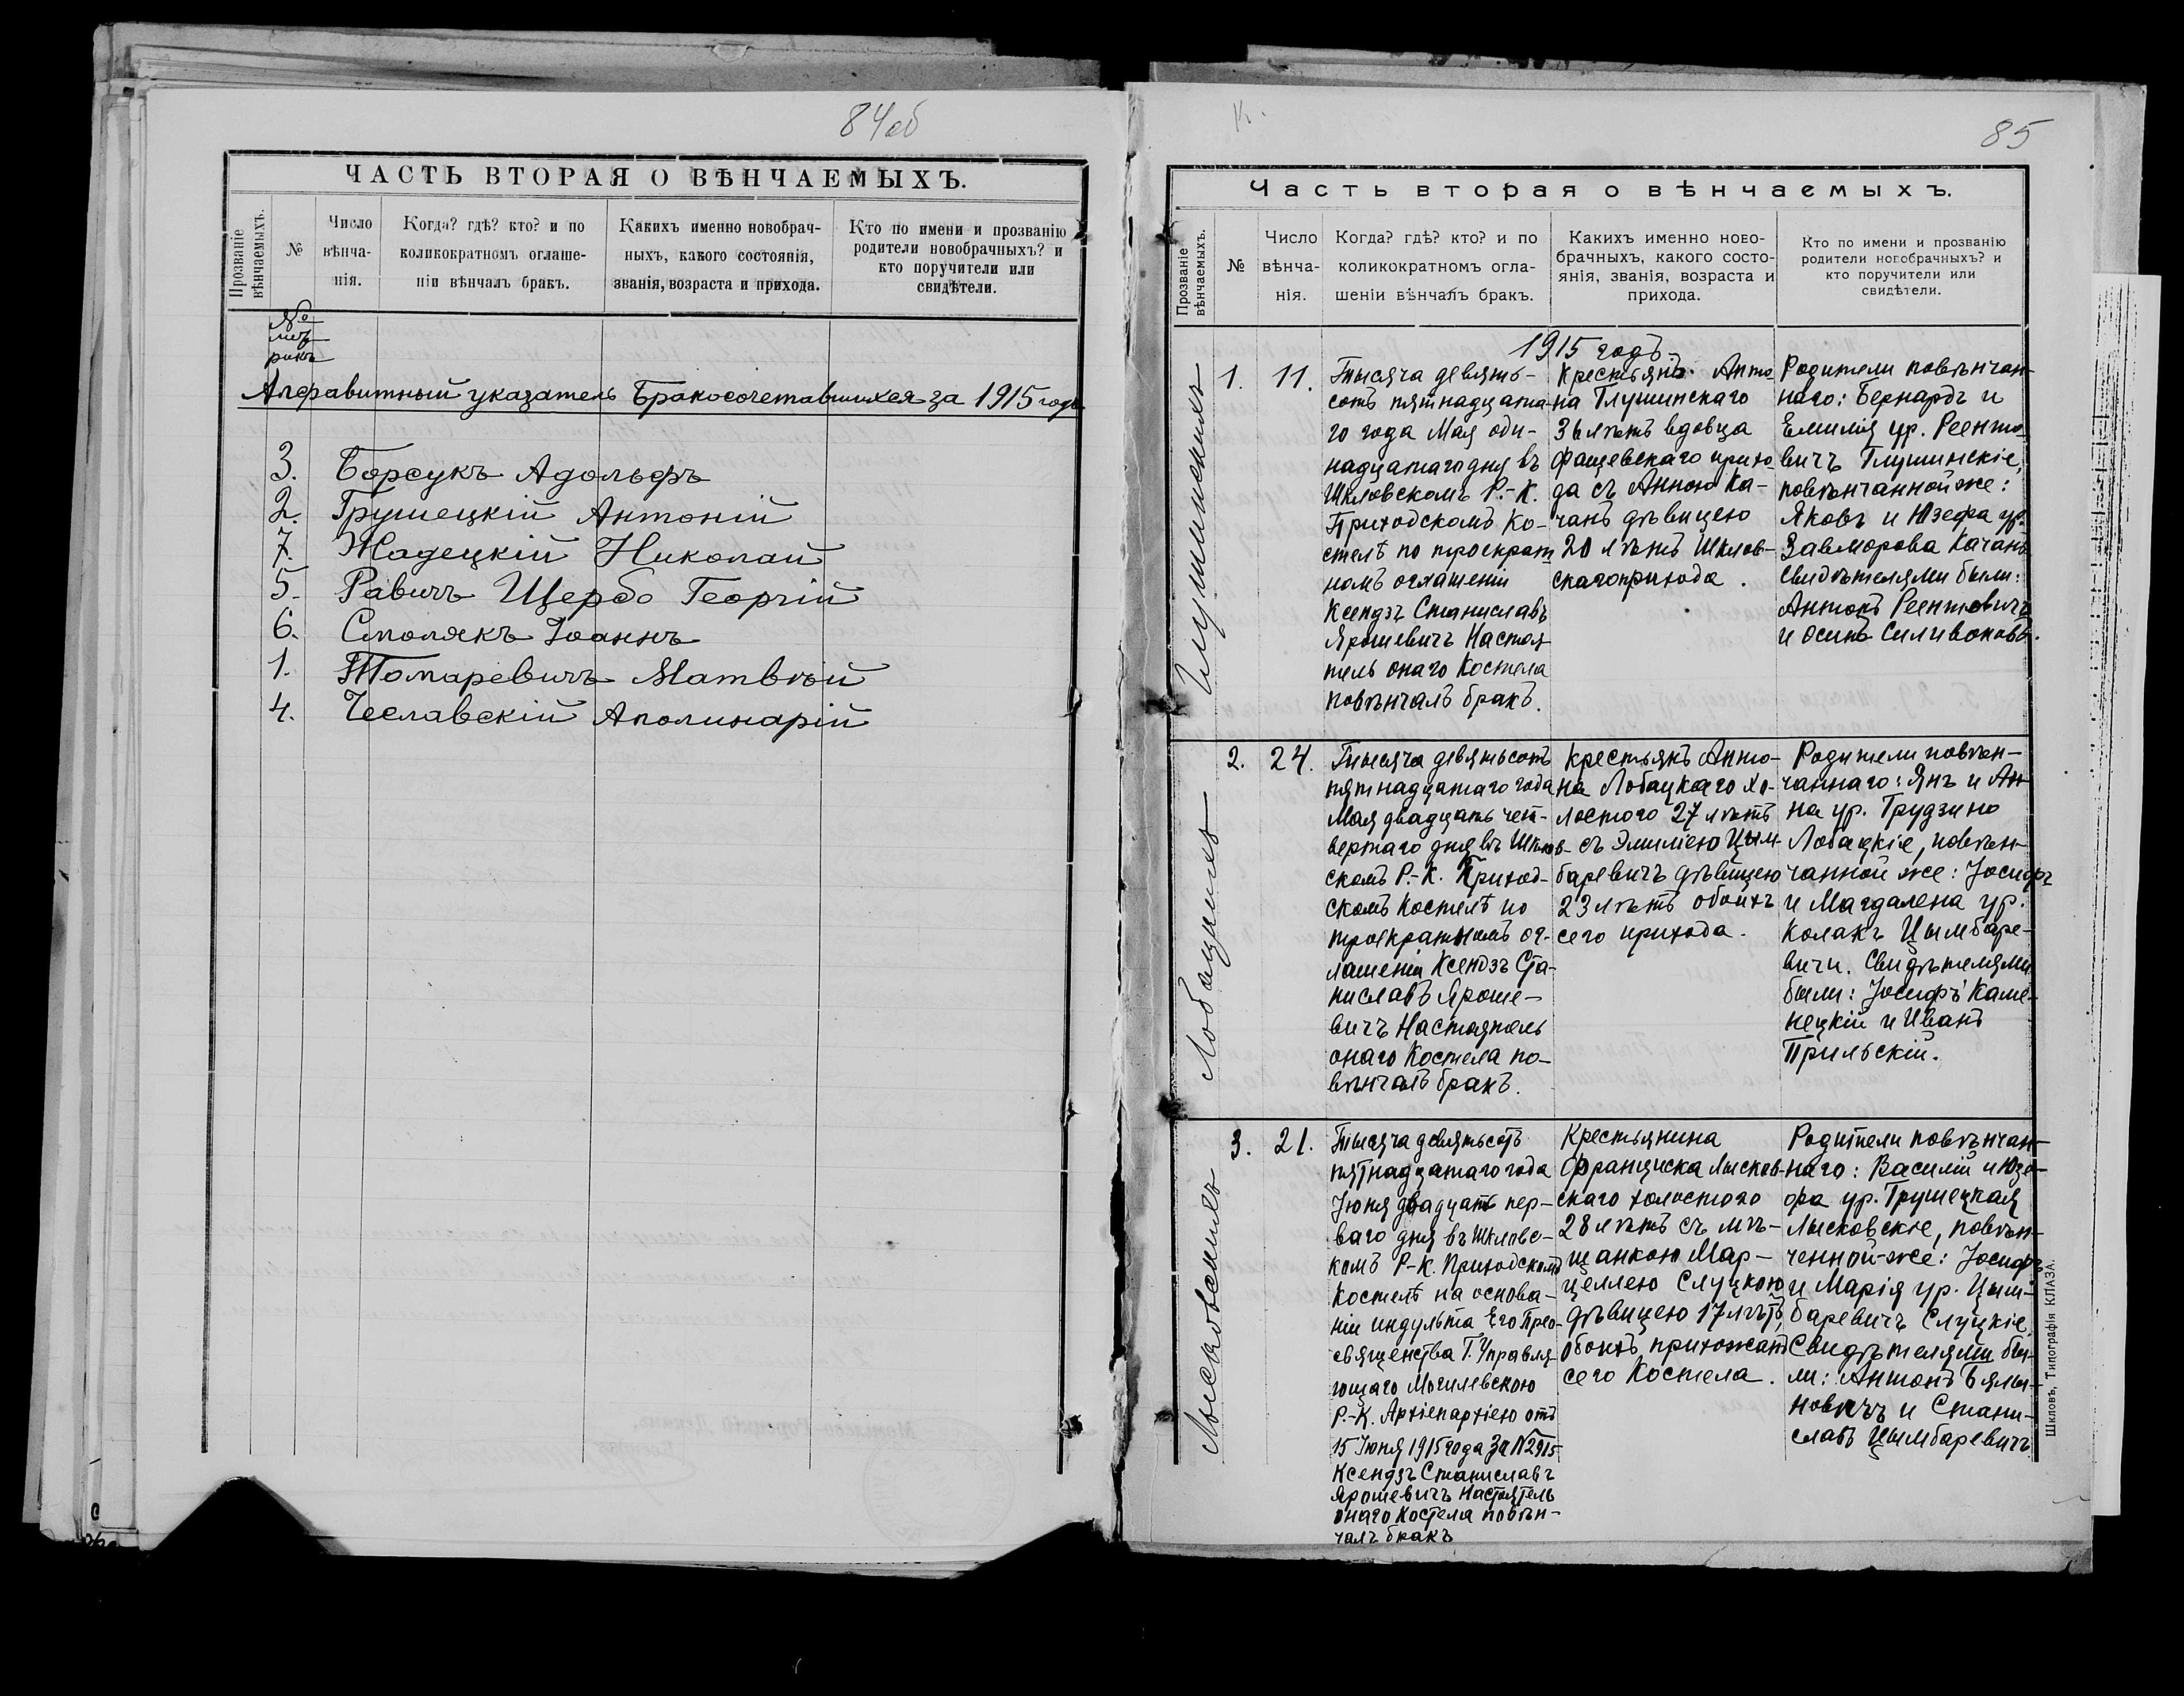 84об
ЧАСТЬ ВТОРАЯ О ВѢНЧАЕМЫХЪ.
Прозваніе вѣнчаемыхъ.
№
Число вѣнча-нія.
Когда? гдѣ? кто? и по коликократномъ оглаше-ніи вѣнчалъ бракъ.
Какихъ именно новобрач-ныхъ, какого состоянія, званія, возраста и прихода.
Кто по имени и прозванію родители новобрачныхъ? и кто поручители или свидѣтели.
№
мѣт
рикъ
Алфавитный указатель Бракосочетавшихся за 1915 годъ
3. Борсукъ Адольфъ
2. Грушецкій Антоній
7. Жадецкій Николай
5. Равичъ Щербо Георгій
6. Смолякъ Іоаннъ
1. Томаревичъ Матвѣй
4. Чеславскій Аполинарій
85
Часть вторая о вѣнчаемыхъ.
Прозваніе вѣнчаемыхъ.
№
Число вѣнча-нія.
Когда? гдѣ? кто? и по коликократномъ огла-шеніи вѣнчалъ бракъ.
Какихъ именно ново-брачныхъ, какого состо-янія, званія, возраста и прихода.
Кто по имени и прозванію родители новобрачныхъ? и кто поручители или свидѣтели.
1915 годъ.
Глушинскихъ
1.
11.
Тысяча девять-
сотъ пятнадцата-
го года Мая оди-
надцатаго дня въ
Шкловскомъ Р.-К.
Приходскомъ Ко-
стелѣ по троекрат
номъ оглашеніи
Ксендзъ Станиславъ
Ярошевичъ Настоя
тель онаго Костела
повѣнчалъ бракъ.
Крестьянъ Анто-
на Глушинскаго
36 лѣтъ вдовца
Фащевскаго прихо-
да съ Анною Ка-
чанъ дѣвицею
20 лѣтъ Шклов-
скаго прихода.
Родители повѣнчан-
наго: Бернардъ и
Емилія ур. Реенто-
вичъ Глушинскіе,
повѣнчанной же:
Яковъ и Юзефа ур.
Завморова Качанъ
Свидѣтелями были:
Антонъ Реентовичъ
и Осипъ Силивоновъ.
Лобацкихъ
2.
24.
Тысяча девятьсотъ
пятнадцатаго года
Мая двадцать чет-
вертаго дня въ Шклов-
скомъ Р.-К. Приход-
скомъ Костелѣ по
троекратномъ ог-
лашеніи Ксендзъ Ста-
ниславъ Яроше-
вичъ Настоятель
онаго Костела по-
вѣнчалъ бракъ.
Крестьянъ Анто-
на Лобацкаго хо-
лостого 27 лѣтъ
съ Эмиліею Цым-
баревичъ дѣвицею
23 лѣтъ обоихъ
сего прихода.
Родители повѣн-
чаннаго: Янъ и Ан-
на ур. Грудзино
Лобацкіе, повѣн-
чанной же: Іосифъ
и Магдалена ур.
Колакъ Цымбаре-
вичи. Свидѣтелями
были: Іосифъ Каме-
нецкій и Иванъ
Прильскій.
Лысковскихъ
3.
21.
Тысяча девятьсотъ
пятнадцатаго года
Іюня двадцать пер-
ваго дня въ Шкловс-
комъ Р-К. Приходскомъ
Костелѣ на основа-
ніи индульта Его Прео-
священства Г. Управля-
ющаго Могилевскою
Р.-К. Архіепархіею отъ
15 Іюня 1915 года За №2915
Ксендзъ Станиславъ
Ярошевичъ Настоятель
онаго Костела повѣн-
чалъ бракъ
Крестьянина
Франциска Лысков-
скаго холостого
28 лѣтъ съ мѣ-
щанкою Мар-
целлею Слуцкою
дѣвицею 17 лѣтъ,
обоихъ прихожанъ
сего Костела.
Родители повѣнчан-
наго: Василій и Юзе-
фа ур. Грушецкая
Лысковскіе, повѣн-
ченной-же: Іосифъ
и Марія ур. Цым-
баревичъ Слуцкіе.
Свидѣтелями бы-
ли: Антонъ Бялы-
новичъ и Стани-
славъ Цымбаревичъ
Шкловъ, Типографія КЛАЗА.